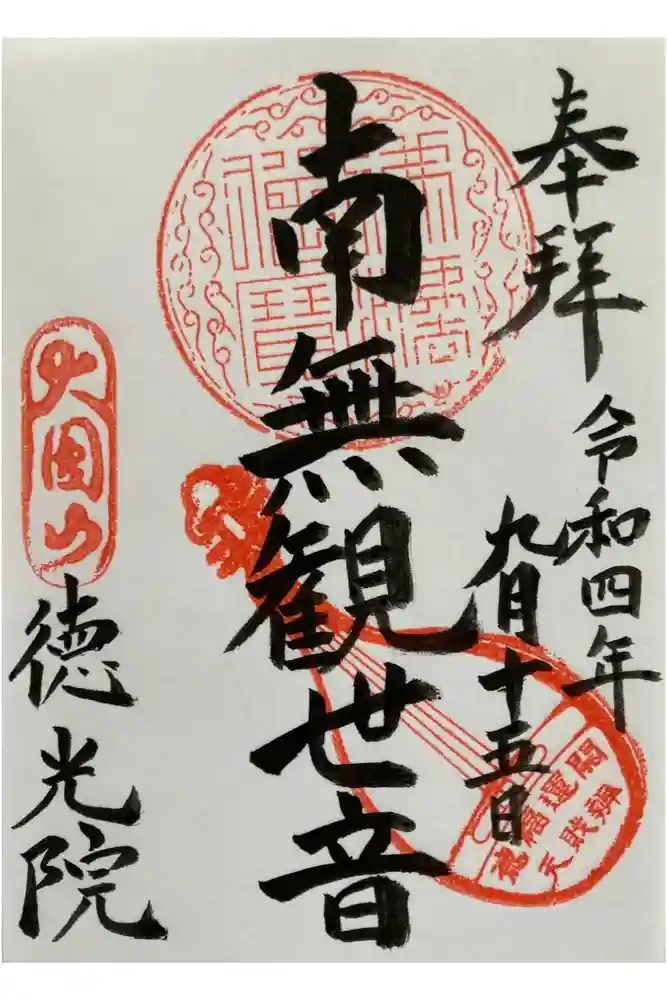 奉拝
令和四年
九月十五日
南無観世音
開運福
辨財天
大圓山
徳光院